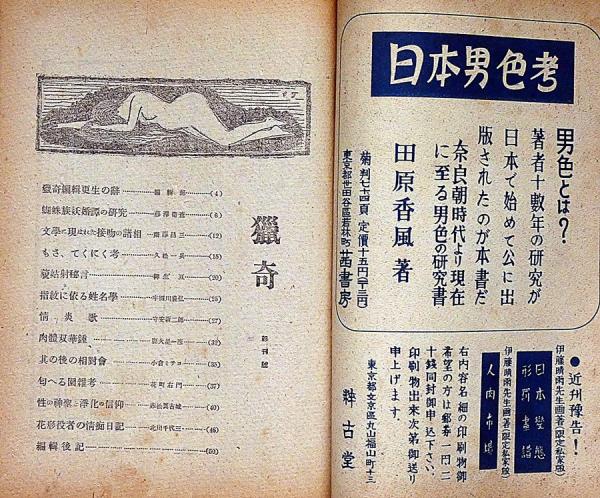 日本男色考
男色とは?
著者十數年の研究が
日本で始めて公に出
版されたのが本書だ
奈良朝時代より現在
に至る男色の研究書
田原香風著
菊判七十四頁 定價十五円(〒三円)
東京都世田谷區若林町 茜書房
●近刊豫告!
伊藤晴雨先生画著(限定私家版)
日本変態
刑罰画譜
伊藤晴雨先生画著(限定私家版)
人肉市場
右内容名細の印刷物御
希望の方は郵券一円二
十銭同封御申込下さい。
印刷物出来次第御送り
申上げます。
東京都文京區丸山福山町十三
粹古堂
獵奇
創刊號
獵奇編輯更生の辭 (4)
蜘蛛族妖婚譚の研究 (6)
文學に現はれた接吻の諸相 (12)
もさ、てくにく考 (15)
(20)
指紋に依る姓名學 (25)
情炎歌 (27)
肉體双華鏡 (32)
其の後の相對會 小倉ミチヨ (35)
匂へる園雜考 花町右門 (37)
性の神聖と淨化の信仰 (40)
花形役者の情痴日記 北川千代三 (46)
編輯後記 (50)